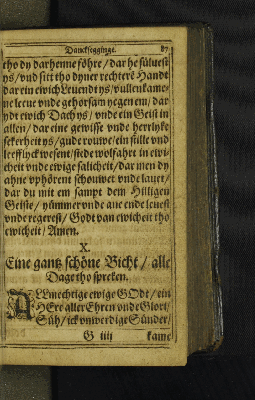 Dancksegginge. 87
tho dy darhenne föhre / dar he sülvest
ys / vnd sitt tho dyner rechteren Handt
dar ein ewich Levendt ys / vullenkame-
ne leeue vnde gehorsam yegen em / dar
ydt ewich Dach ys / vnde ein Geist in
allen / dar eine gewisse vnde herrlyke
sekerheit ys / gude rouwe / ein still vnd
leefflyck wesent / stede wolfahrt in ewi-
cheit vnde ewige salicheit / dar men dy
ahne vphörent schouwet vnde lauet /
dar du mit em sampt dem Hilligen
Geiste / nümmer vnde ane ende leuest
vnde regerest / Godt van ewicheit tho
ewicheit / Amen.
X.
Eine gantz schöne Bicht / alle
Dage tho spreken.
ALLmechtige ewige GOdt / ein
HEre aller Ehren vnde Glori /
Süh / ick vnwerdige Sünder /
G iiij kame